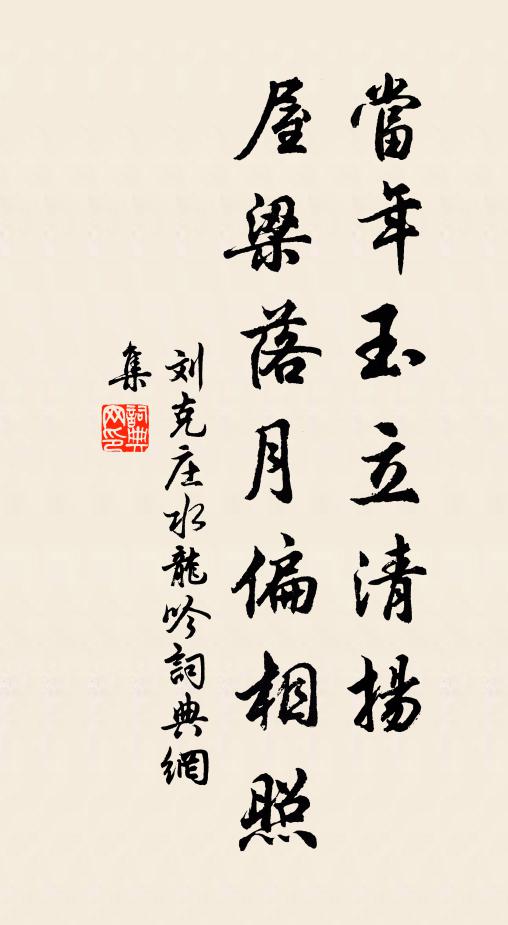 當年玉立清揚
屋梁落月偏相照
刘克庄水龍吟詞典網
集
詞典
网印